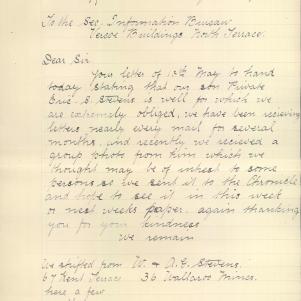 To the Sec. Information Bureau
Verco Buildings, North Terrace.
Dear Sir
Your letter of 15th May to hand
today stating that our son Private
Eric S. Stevens is well for which we
are extremely obliged, we have been recieving
letters nearly every mail for several
months, and recently we recieved a
group photo from him which we
thought may be of intrest to some
persons so we sent it to the Chronicle
and hope to see it in this week
or next weeks paper. again thanking
you for your kindness
we remain
W. & A. E. Stevens.
We shifted from
67 Kent Terrace 36 Wallaroo Mines.
here a few